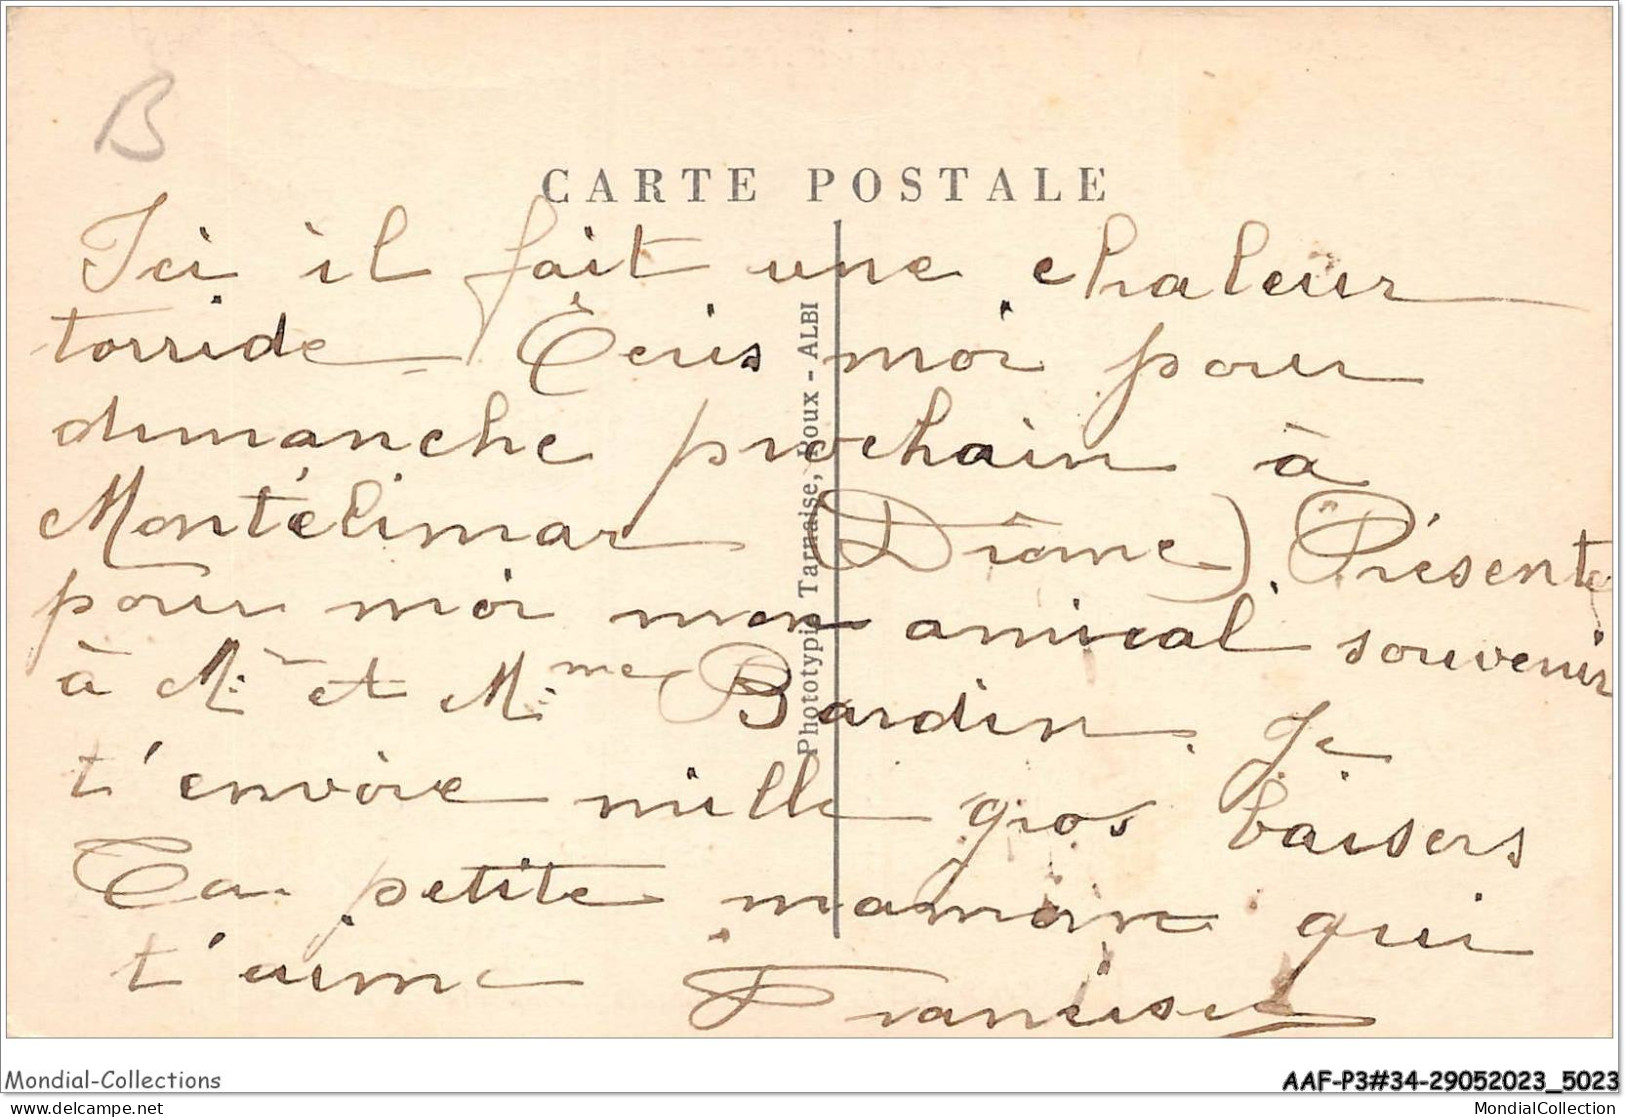 B
CARTE POSTALE
Ici il fait une chaleur
torride. Ecris moi pour
dimanche prochain à
Montélimar (Drôme). Présente
pour moi mon amical souvenir
à Mr et Mme Bardin. Je
t'envoie mille gros baisers
Ta petite maman qui
t'aime
Phototypie Tarnaise, Poux - ALBI
Mondial-Collections
AAF-P3#34-29052023_5023
www.delcampe.net
MondialCollection